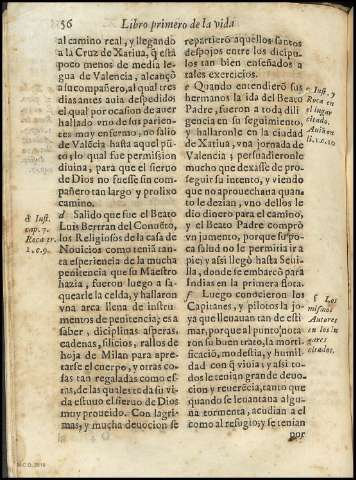 56 Libro primero de la vida
al camino real, y llegando
a la Cruz de Xatiua, q̃ està
poco menos de media legua
de Valencia, alcançò
a su compañero, al qual tres
dias antes auia despedido
el qual por ocasion de auer
hallado vno de sus parientes
muy enfermo, no salio
de Valẽcia hasta aquel pũto;
lo qual fue permision
diuina, para que el sieruo
de Dios no fuesse sin compañero
tan largo y prolixo
camino.
d Salido que fue el Beato
Luis Bertran del Conuẽto,
los Religiosos de la casa de
Nouicios como tenia tanta
esperiencia de la mucha
penitencia que su Maestro
hazia, fueron luego a saquearle
la celda, y hallaron
vna arca llena de instrumentos
de penitencia; es a
saber, diciplinas asperas,
cadenas, silicios, rallos de
hoja de Milan para apretarse
el cuerpo, y otras cosas
tan regaladas como estas,
de las quales toda su vida
estuuo el sieruo de Dios
muy proueido. Con lagrimas,
y mucha deuocion se
d Iust.
cap. 7.
Roca tr.
1. c. 9.
repartierõ aquellos santos
despojos entre los dicipulos
tan bien enseñados a
tales exercicios.
e Quando entendierõ sus
hermanos la ida del Beato
Padre, fueron a toda diligencia
en su seguimiento,
y hallaronle en la ciudad
de Xatiua, vna jornada de
Valencia; persuadieronle
mucho que dexasse de proseguir
su intento, y viendo
que no aprouechaua quanto
le dezian, vno dellos le
dio dinero para el camino,
y el Beato Padre comprò
vn jumento, porque su poca
salud no le permitia ir a
pie; y assi llegò hasta Seuilla,
donde se embarcò para
Indias en la primera flota.
f Luego conocieron los
Capitanes, y pilotos la joya
que lleuauan tan de estimar,
porque al punto notaron
su buen trato, la mortificaciõ,
modestia, y humildad
con q̃ viuia; y assi todos
le tenian grande deuocion
y reuerẽcia, tanto que
quando se leuantaua alguna
tormenta, acudian a el
como al refugio, y se tenian
por
e Iust. y
Roca en
el lugar
citado.
Auiñ en
li. 1. c. 10.
f Los
mismos
Autores
en los lugares
citados.